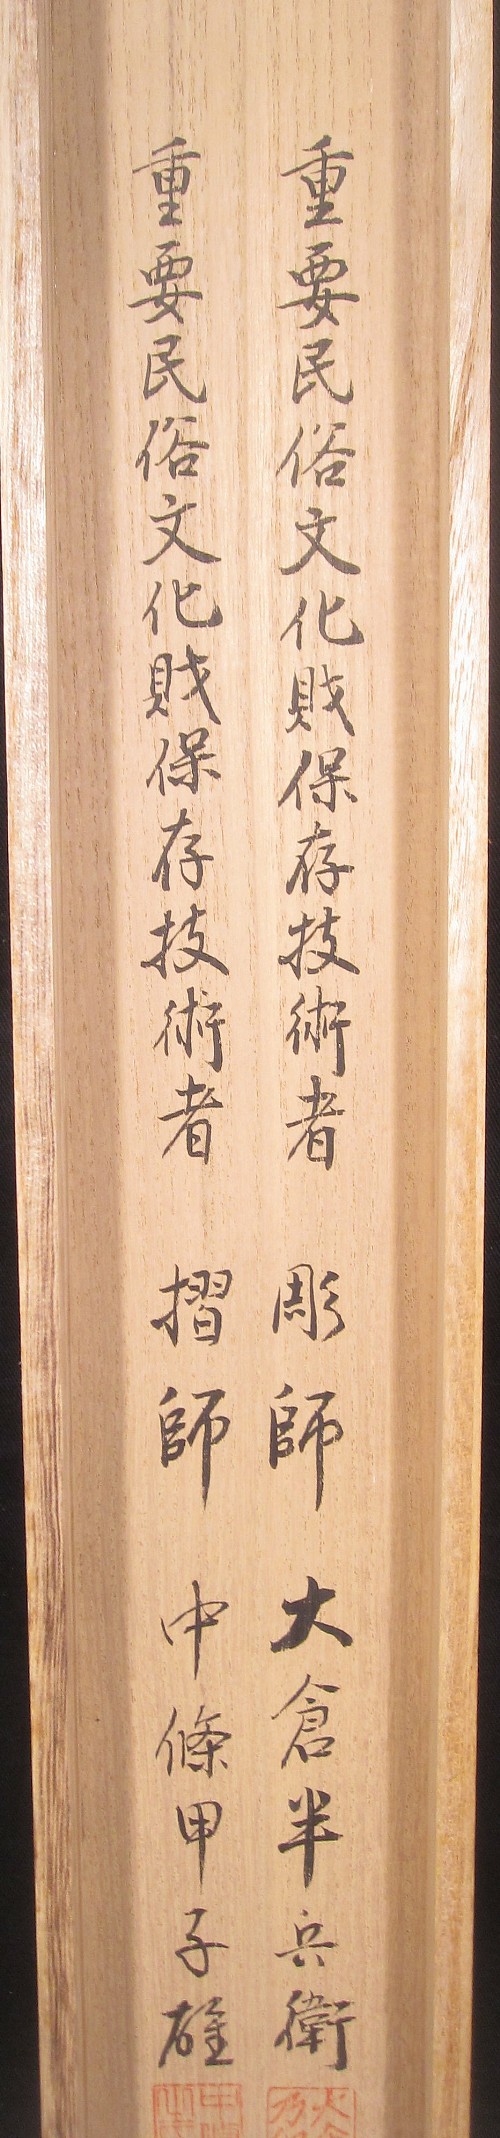 重要民俗文化財保存技術者 彫師 大倉半兵衛
重要民俗文化財保存技術者 摺師 中條甲子雄